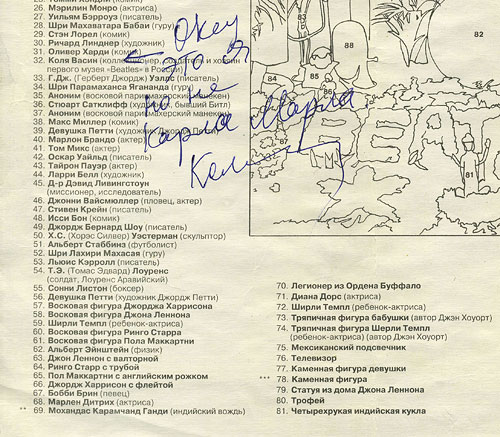 26. Мэрилин Монро (актриса)
27. Уильям Бэрроуз (писатель)
28. Шри Махаватара Бабаи (гуру)
29. Стэн Лорел (комик)
30. Ричард Линднер (художник)
31. Оливер Харди (комик)
32. Коля Васин (коллекционер, создатель и хозяин
первого музея «Beatles» в России)
33. Г.Дж. (Герберт Джордж) Уэллс (писатель)
34. Шри Парамаханса Ягананда (гуру)
35. Аноним (восковой парикмахерский манекен)
36. Стюарт Сатклифф (художник, бывший Битл)
37. Аноним (восковой парикмахерский манекен)
38. Макс Миллер (комик)
39. Девушка Петти (художник Джордж Петти)
40. Марлон Брандо (актер)
41. Том Микс (актер)
42. Оскар Уайльд (писатель)
43. Тайрон Пауэр (актер)
44. Ларри Белл (художник)
45. Д-р Дэвид Ливингстоун
(миссионер, исследователь)
46. Джонни Вайсмюллер (пловец, актер)
47. Стивен Крейн (писатель)
48. Исси Бон (комик)
49. Джордж Бернард Шоу (писатель)
50. Х.С. (Хорэс Силвер) Уэстерман (скульптор)
51. Альберт Стаббинз (футболист)
52. Шри Лахири Махасая (гуру)
53. Льюис Кэрролл (писатель)
54. Т.Э. (Томас Эдвард) Лоуренс
(солдат, Лоуренс Аравийский)
55. Сонни Листон (боксер)
56. Девушка Петти (художник Джордж Петти)
57. Восковая фигура Джорджа Харрисона
58. Восковая фигура Джона Леннона
59. Ширли Темпл (ребенок-актриса)
60. Восковая фигура Ринго Старра
61. Восковая фигура Пола Маккартни
62. Альберт Эйнштейн (физик)
63. Джон Леннон с валторной
64. Ринго Старр с трубой
65. Пол Маккартни с английским рожком
66. Джордж Харрисон с флейтой
67. Бобби Брин (певец)
68. Марлен Дитрих (актриса)
** 69. Мохандас Карамчанд Ганди (индийский вождь)
70. Легионер из Ордена Буффало
71. Диана Дорс (актриса)
72. Ширли Темпл (ребенок-актриса)
73. Тряпичная фигура бабушки (автор Джэн Хоуорт)
74. Тряпичная фигура Шерли Темпл
(ребенок-актриса) (автор Джэн Хоуорт)
75. Мексиканский подсвечник
76. Телевизор
77. Каменная фигура девушки
*** 78. Каменная фигура
79. Статуя из дома Джона Леннона
80. Трофей
81. Четырехрукая индийская кукла
Окей
это я
но не
Карла Марла
83
88
84
85
86
82
87
81